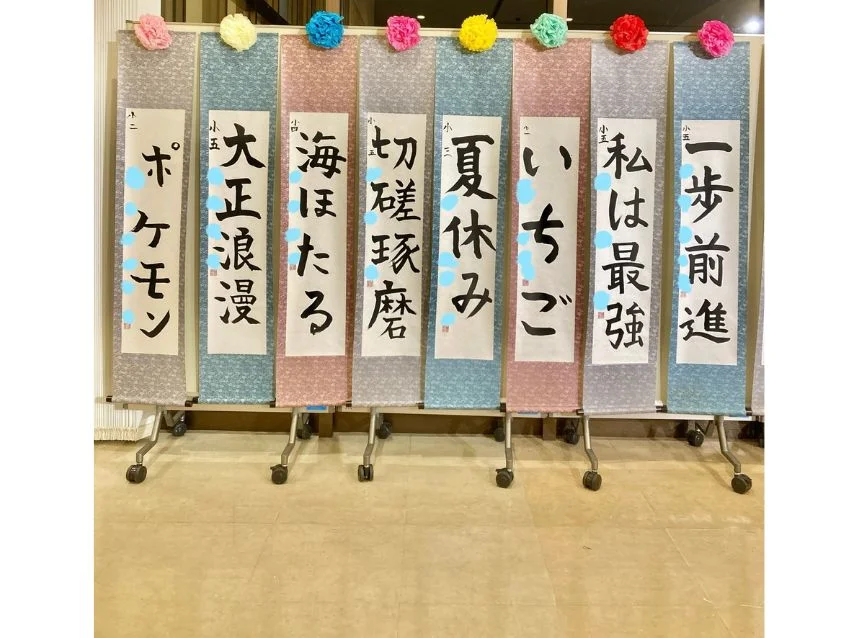 小二
ポケモン
小五
大正浪漫
小四
海ほたる
小五
切磋琢磨
小三
夏休み
小一
いちご
小五
私は最強
小五
一歩前進